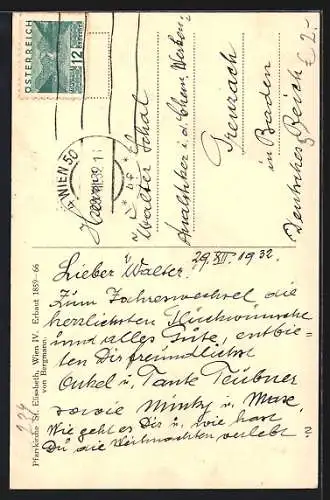 ÖSTERREICH
12
WIEN 50
Herrn
Walter Schal
Analytiker i. d. Chem. Werken
Grenzach
in Baden
Deutsches Reich
€ 2.-
Pfarrkirche St. Elisabeth, Wien IV. Erbaut 1859—66
von Bergmann.
29. XII. 1932.
Lieber Walter.
Zum Jahreswechsel die
herzlichsten Glückwünsche
und alles Gute, entbie-
ten Dir freundlichst
Onkel u. Tante Teubner
sowie Minky u. Maxe,
Wie geht es Dir u. wie hast
Du die Weihnachten verlebt?